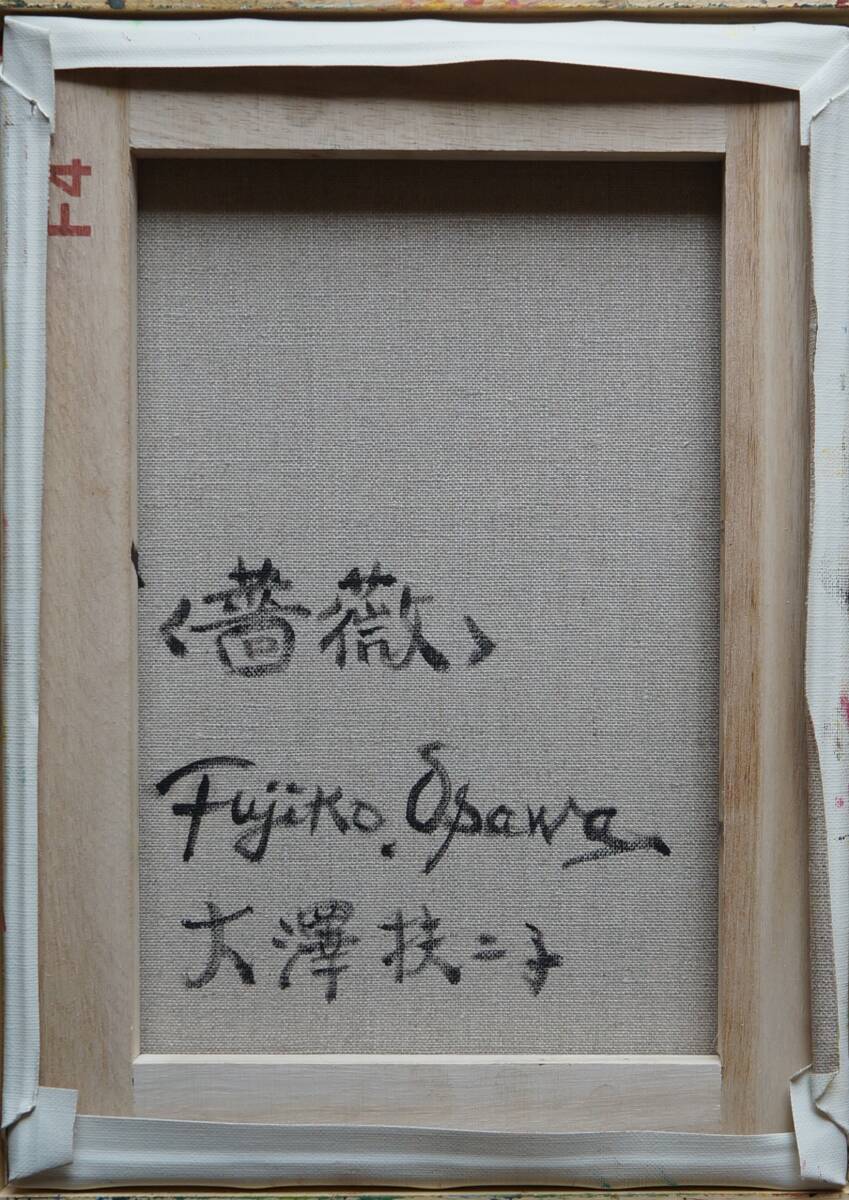 F4
〈薔薇〉
Fujiko. Osawa
大澤扶二子